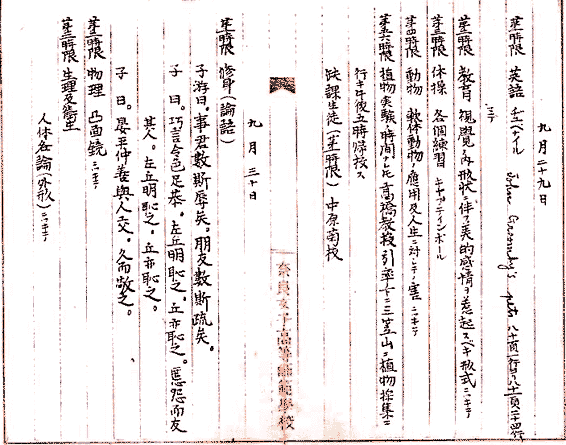 九月二十九日
第一時限 英語 チエペイル John Grundy's pets 八十頁一行ヨリ八十一頁二十四行マデ
第二時限 教育 視覚ノ内形状ニ伴フ美的感情ヲ惹起スベキ形式ニキテ
第三時限 体操 各個練習 キャプテインボール
第四時限 動物 軟体動物ノ應用及人生ニ対シテノ害ニキテ
第五六時限 植物実験ノ時間ナレドモ高橋教授引率ノ下ニ三笠山ニ植物採集ニ
行キ午後五時帰校ス
缺課生徒(第一時限) 中原菊枝
奈良女子高等師範學校
九月三十日
第一時限 修身(論語)
子游曰。事君數斯辱矣。朋友數斯疏矣。
子曰。巧言令色足恭。左丘明恥之。丘亦恥之。匿怨而友
其人。左丘明恥之。丘亦恥之。
子曰。晏平仲善與人交。久而敬之。
第二時限 物理 凸面鏡ニキテ
第三時限 生理及衛生
人体各論(外形)ニキテ